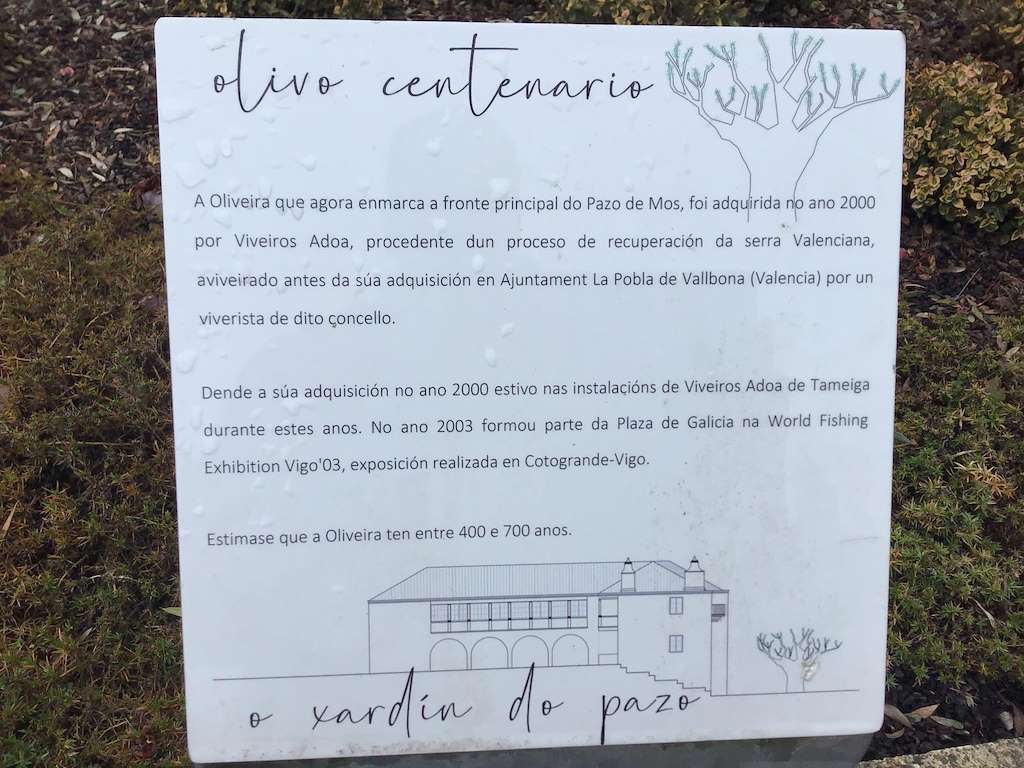 olivo centenario
A Oliveira que agora enmarca a fronte principal do Pazo de Mos, foi adquirida no ano 2000
por Viveiros Adoa, procedente dun proceso de recuperación da serra Valenciana,
aviveirado antes da súa adquisición en Ajuntament La Pobla de Vallbona (Valencia) por un
viverista de dito concello.
Dende a súa adquisición no ano 2000 estivo nas instalacións de Viveiros Adoa de Tameiga
durante estes anos. No ano 2003 formou parte da Plaza de Galicia na World Fishing
Exhibition Vigo'03, exposición realizada en Cotogrande-Vigo.
Estimase que a Oliveira ten entre 400 e 700 anos.
o xardín do pazo